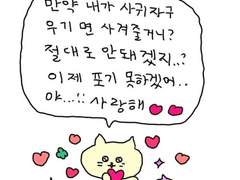 만약 내가 사귀자구
우기면 사겨줄거니?
절대로 안돼겠지..?
이제 포기 못하겠어..
야...!! 사랑해